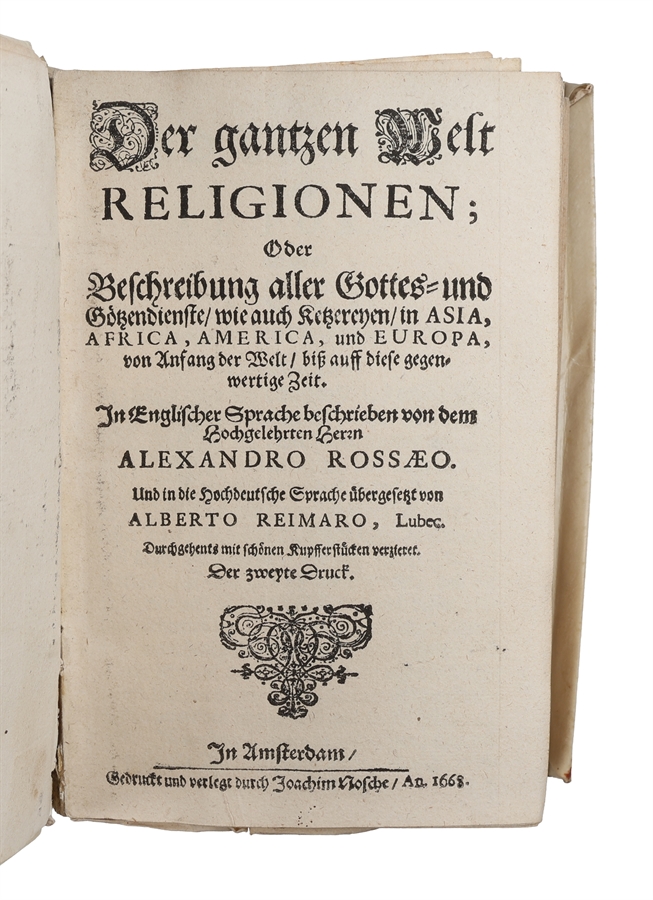 Der gantzen Welt
RELIGIONEN;
Oder
Beschreibung aller Gottes-und
Götzendienste/ wie auch Ketzereyen/ in ASIA,
AFRICA, AMERICA, und EUROPA,
von Anfang der Welt/ biß auff diese gegen-
wertige Zeit.
In Englischer Sprache beschrieben von dem
Hochgelehrten Herrn
ALEXANDRO ROSSÆO.
Und in die Hochdeutsche Sprache übergesetzt von
ALBERTO REIMARO, Lubec.
Durchgehents mit schönen Kupfferstücken verzieret.
Der zweyte Druck.
In Amsterdam/
Gedruckt und verlegt durch Joachim Nosche/ An. 1668.